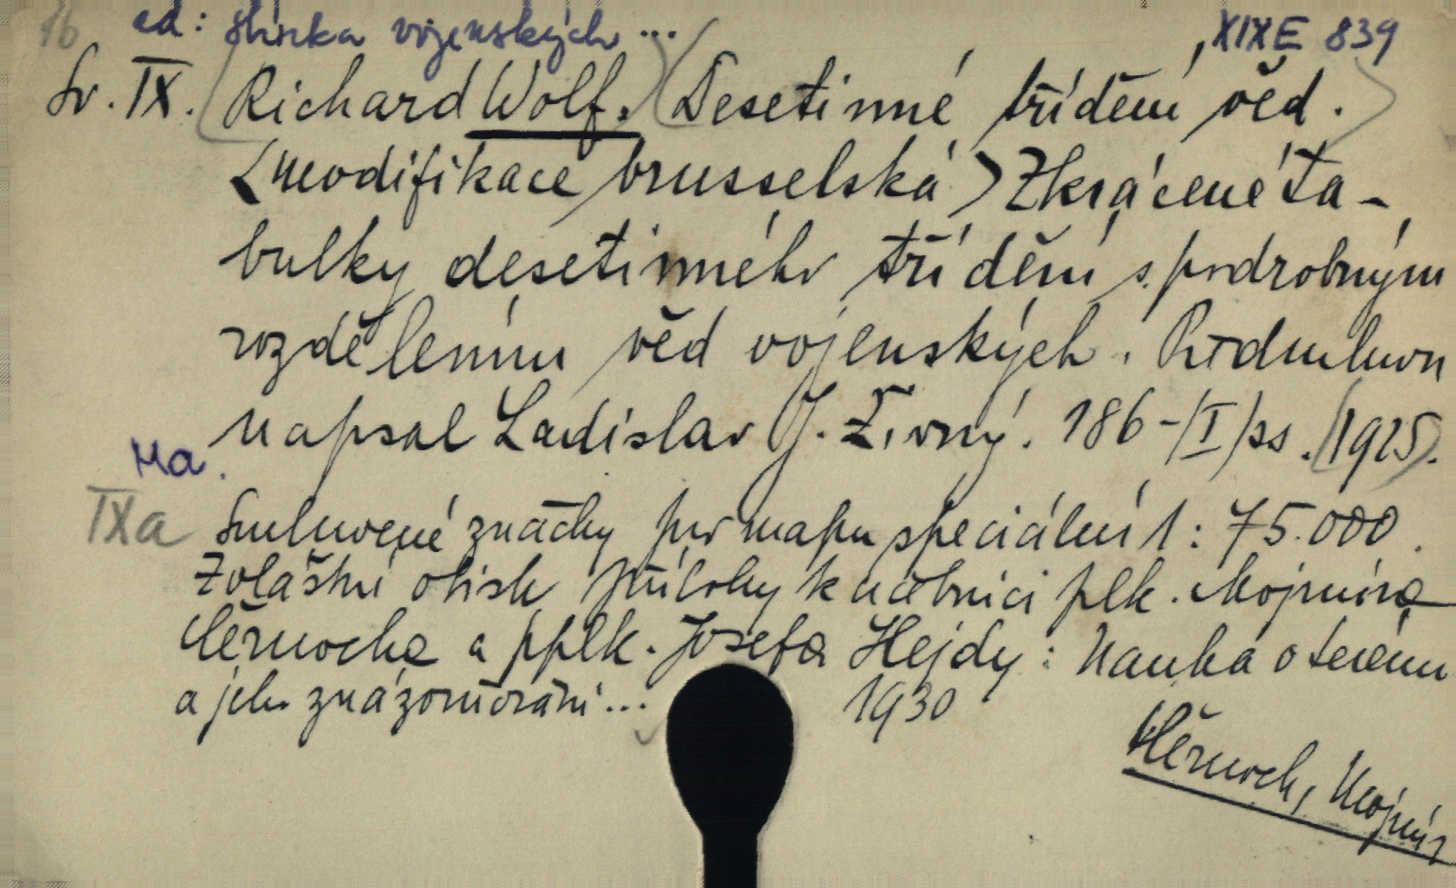 16 ed: sbírka vojenských... XIX E 839
Sv. IX. (Richard Wolf.) (Desetinné třídění věd.)
<modifikace brusselská> Zkrácené ta-
bulky desetinného třídění s podrobným
rozdělením věd vojenských. Předmluvu
napsal Ladislav J. Živný. 186-/I/ ss. (1925).
Ma.
IXa Smluvené značky pro mapu speciální 1:75.000.
Zvláštní otisk přílohy k učebnici plk. Mojmíra
Něrnocha a pplk. Josefa Hejdy: Nauka o terénu
a jeho znázorňování... 1930
Něrnoch, Mojmír